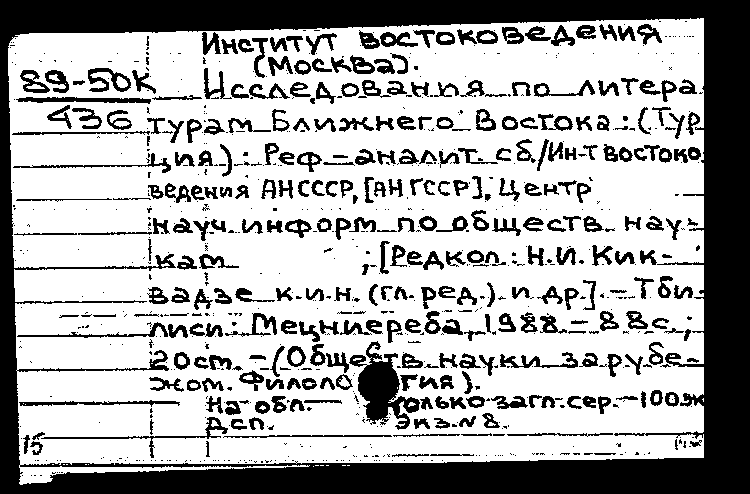 Институт востоковедения
(Москва).
89-50К Исследования по литера
436 турам Ближнего Востока: (Тур
ция): Реф-аналит. сб./Ин-т востоко
ведения АН СССР, [АН ГССР], Центр
науч. информ по обществ. нау-
кам ; [Редкол: Н.И. Кик-
вадзе к.и.н. (гл.ред.) и др]. - Тби-
лиси: Мецниереба, 1988. - 88с.;
20см. - (Обществ. науки за рубе-
жом. Филология).
На обл. только загл.сер. - 100эк
ДСП. Экз.№8.
15